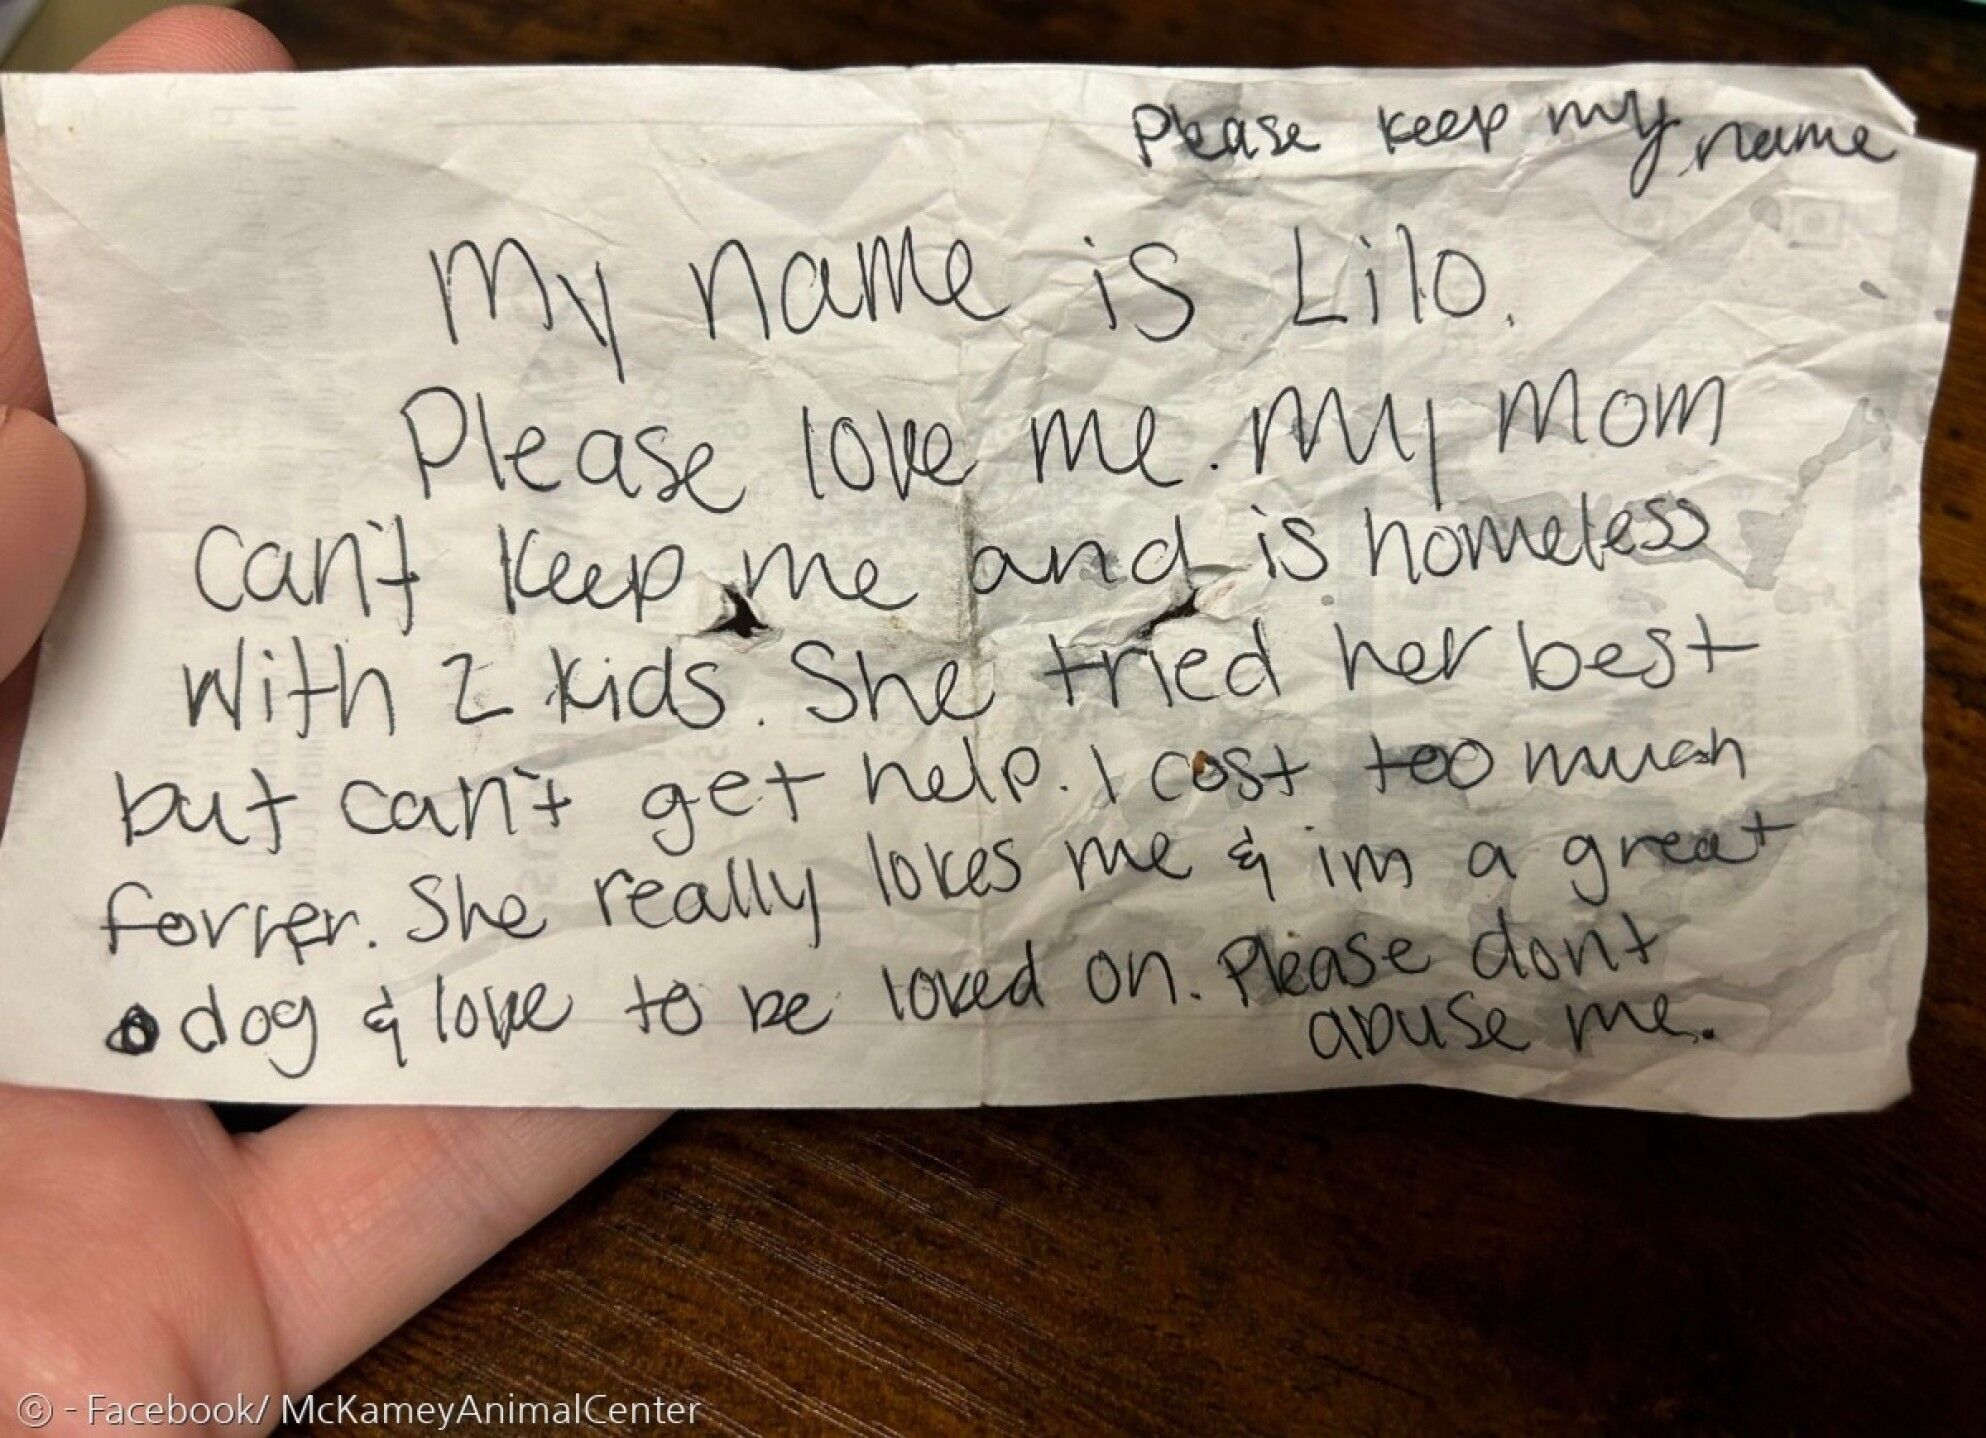 Please keep my name
My name is Lilo.
Please love me. My Mom
can't keep me and is homeless
with 2 kids. She tried her best
but can't get help. I cost too much
for her. She really loves me & im a great
dog & love to be loved on. Please dont
abuse me.
© - Facebook/ McKameyAnimalCenter